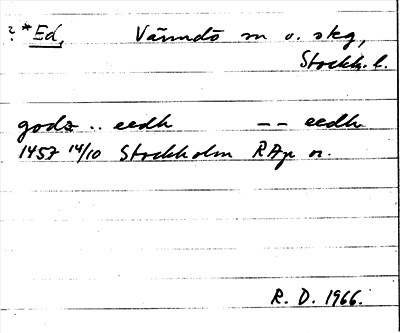 ? *Ed, Värmdö sn o. skg,
Stockh. l.
godz .. eedh -- eedh
1457 14/10 Stockholm RAp or.
R. D. 1966.